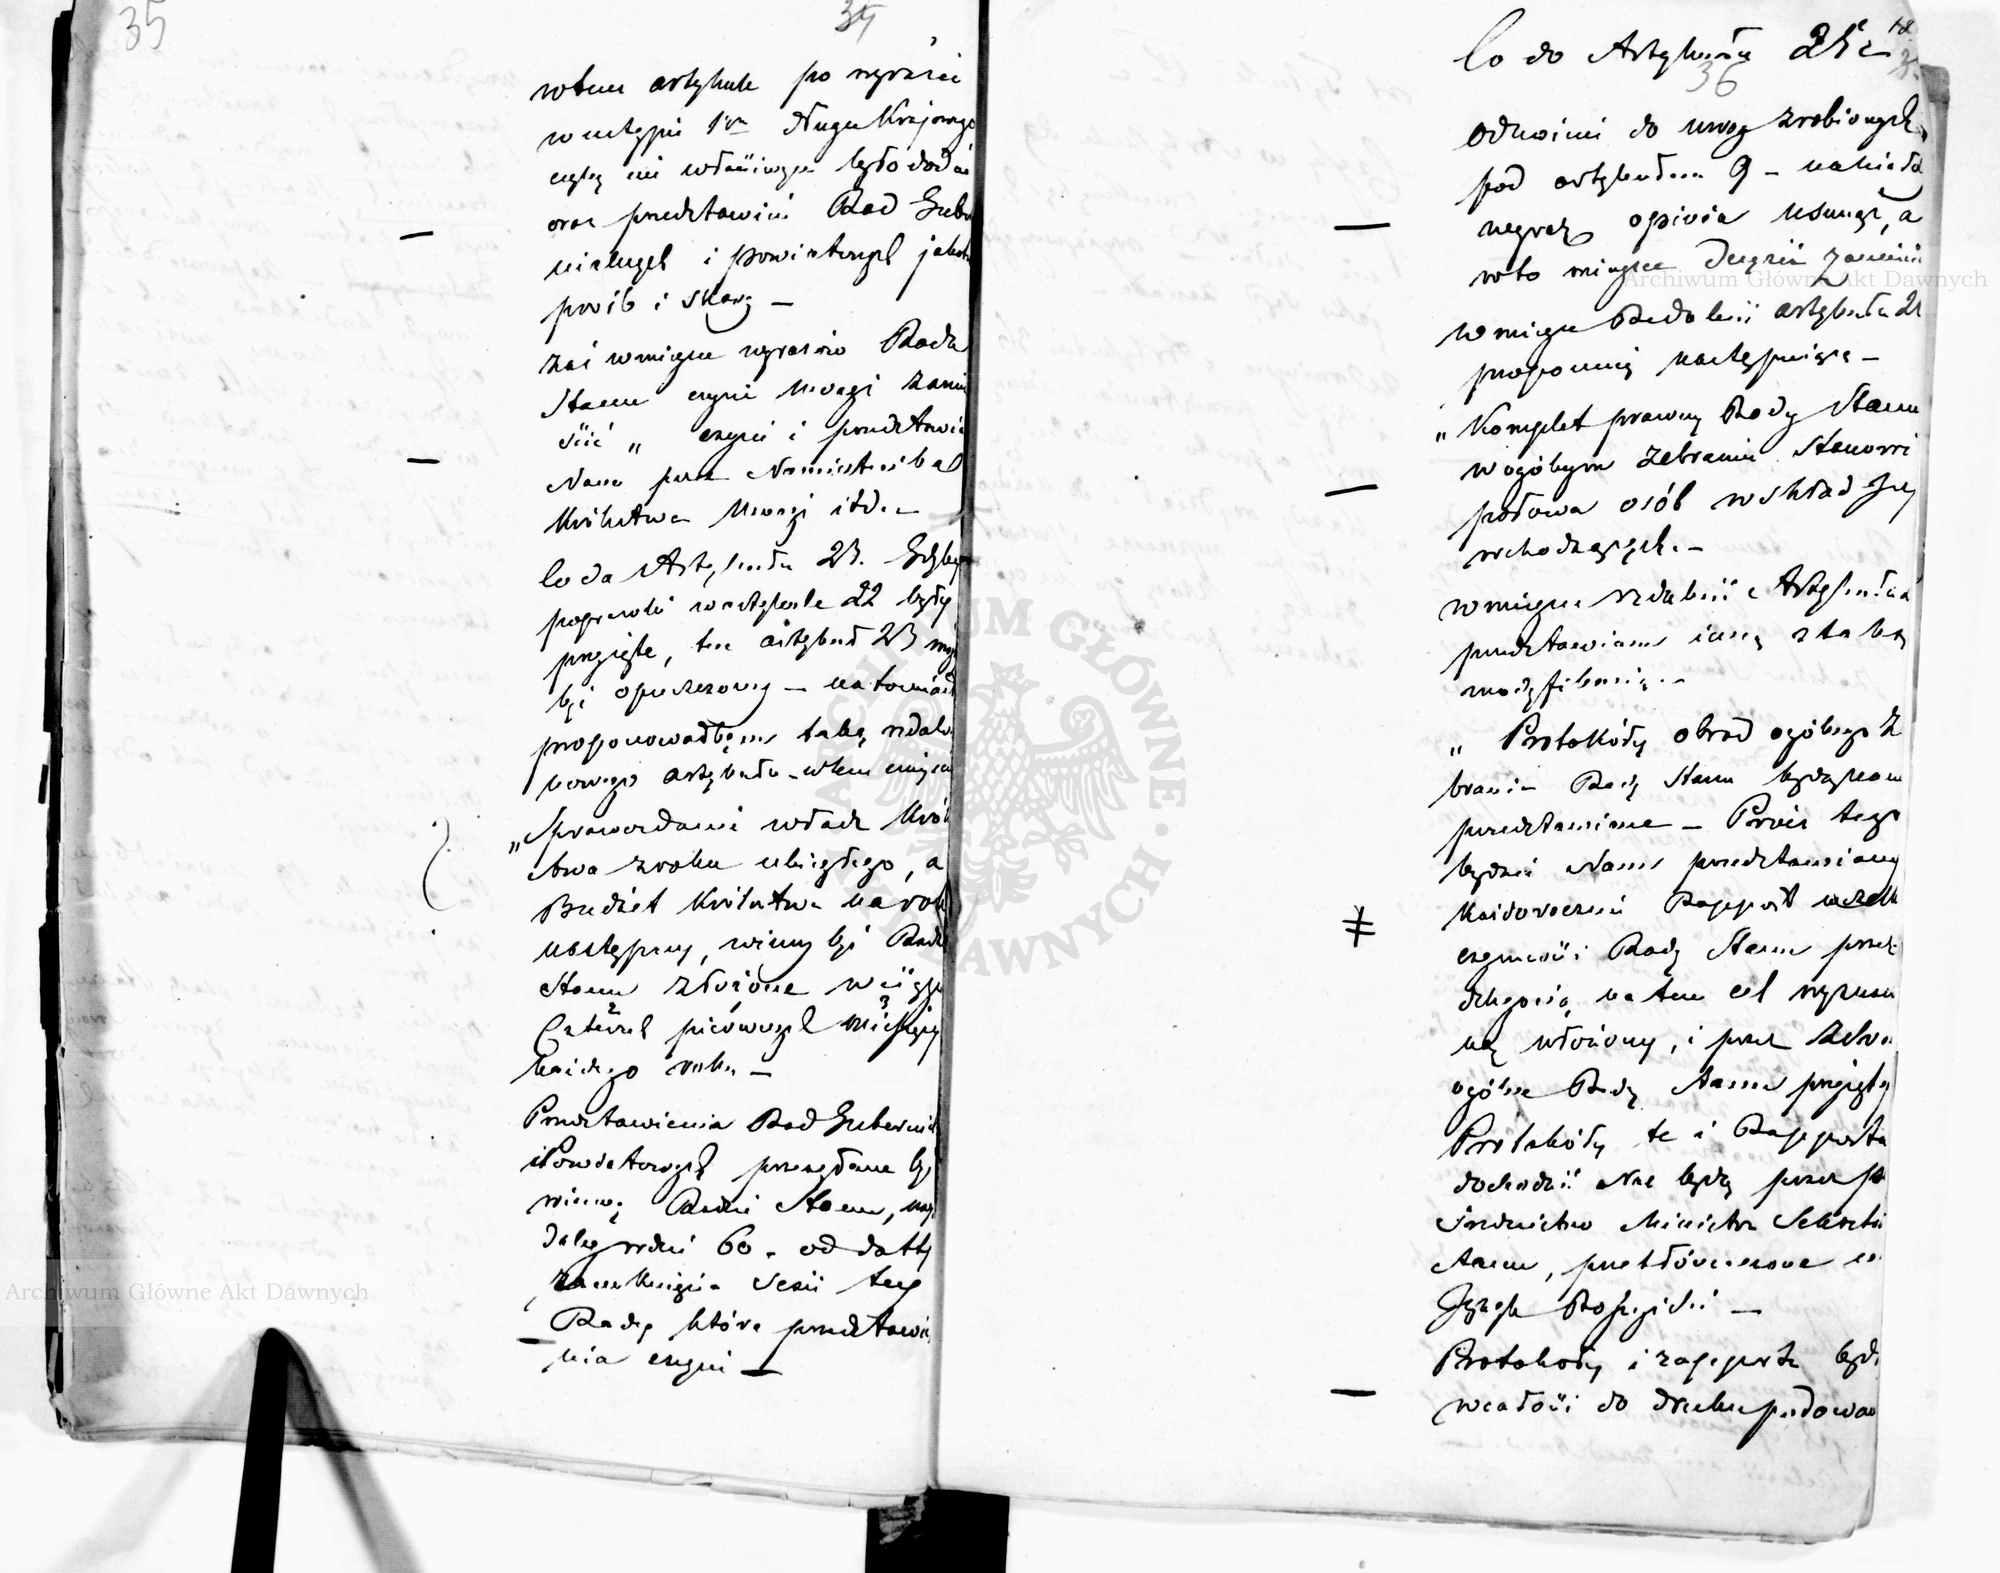 35
35
wtem artykule po wyrazie
w ustępie 1m długu Krajowego
czyby nie właściwym było dodać
oraz przedstawień Rad Guber
nialnych i powiatowych jako też
prośb i skarg —
zaś w miejscu wyrazów Rada
Stanu czyni uwagi zamie
ścić „ czyni i przedstawia
Nam przez Namiestnika
Królestwa Uwagi itd. —
Co do Artykułu 23. Gdyby
poprawki w artykule 22 były
przyjęte, ten artykuł 23 mógłby
być opuszczony — natomiast
proponowałbym taką redak
nowego artykułu w tem miejscu
„Sprawozdania władz Król
stwa z roku ubiegłego, a
Budżet Królestwa na rok
następny, winny być Radzie
Stanu złożone w ciągu
Czterech pierwszych miesięcy
każdego roku —
Przedstawienia Rad Gubernial
i Powiatowych przesłane być
winny Radzie Stanu, naj
daley w dni 60. od datty
zamknięcia Sesii tey
Rady która przedstawie
nia czyni —
Co do Artykułu 24 i 25
36
odnośnie do uwag zrobionych
pod artykułem 9 —
wyraz opinia usunąć, a
w to miejsce decyzii zamieścić
w miejsce Redakcii artykułu 24
proponuię następuiącą —
„ Komplet prawny Rady Stanu
w ogólnym zebraniu stanowi
połowa osób w skład Jey
wchodzących. —
w miejsce redakcii Artykułu 25
przedstawiam inną z taką
modyfikacią. —
„ Protokóły obrad ogólnego Ze
brania Rady Stanu będą Nam
przedstawiane — Prócz tego
będzie Nam przedstawiany
każdorocznie Rapport wszelk
czynności Rady Stanu przez
delegacią na ten cel wyznaczo
ną ułożony, i przez Zebra
ogólne Rady Stanu przyjęty
Protokóły te i Rapporta
dochodzić Nas będą przez po
średnictwo Ministra Sekretarza
Stanu, przetłómaczone na
Języh Rossyiski —
Protokoły i rapporta będą
w całości do druku podowane
Archiwum Główne Akt Dawnych
Archiwum Główne Akt Dawnych
ARCHIWUM GŁÓWNE AKT DAWNYCH